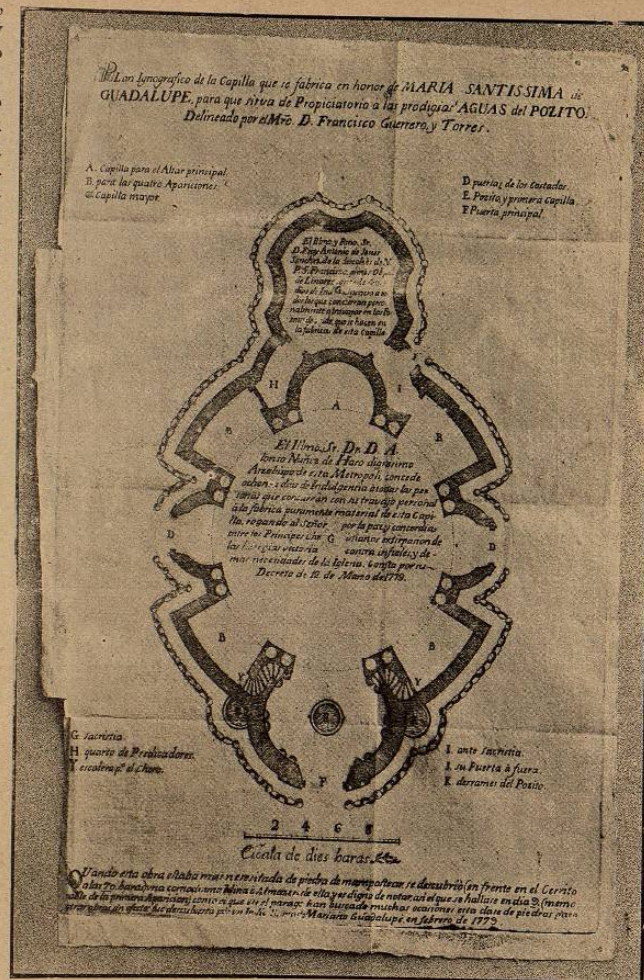 PLan Ignografico de la Capilla que se fabrica en honor de MARIA SANTISSIMA de
GUADALUPE, para que sirva de Propiciatorio a las prodigiosas AGUAS del POZITO.
Delineado por el Mro. D. Francisco Guerrero, y Torres.
A. Capilla para el Altar principal.
B. para las quatro Apariciones.
C. Capilla mayor.
D. puertas de los Costados.
E. Pozito, y primera Capilla
F. Puerta principal.
El Illmo. y Rmo. Sr.
D. Fray Antonio de Jesus
de la de N.
P. S. Francisco
de Linares
dias de
los que concurran perso
nalmente a trabajar en las
que se hacen en
la fabrica de esta Capilla
H
I
A
B
B
El Illmo. Sr. Dr. D. A
lonso Nuñez de Haro dignisimo
Arzobispo de esta Metropoli, concede
ochenta dias de Indulgencia a todas las per
sonas que concurran con su travajo personal
à la fabrica puramente material de esta Capi
lla, rogando al Señor por la paz y concordia
entre los Principes Chris G tianos extirpacion de
las heregias victoria contra infieles, y de
mas necesidades de la Iglesia. Consta por su
Decreto de 12 de Marzo de 1779.
D
D
B
B
Y
Y
E
F
G sacristia.
H quarto de Predicadores.
Y escalera pa. el Choro.
I. ante Sacristia.
I. su Puerta à fuera.
K derrames del Pozito.
2 4 6 8
Escala de dies baras
QUando esta obra estaba mas necesitada de piedra de mampostear se descubrió (en frente en el Cerrito
a las 70 baras) una Mina ó de ella, y es digno de notar asi el que se hallase en dia 9. (memo
rable de la primera Aparicion) como el que en el parage han buscado muchas ocasiones esta clase de piedras para
otras obras sin efecto, fue descubierta por un Maria de Guadalupe, en febrero de 1779